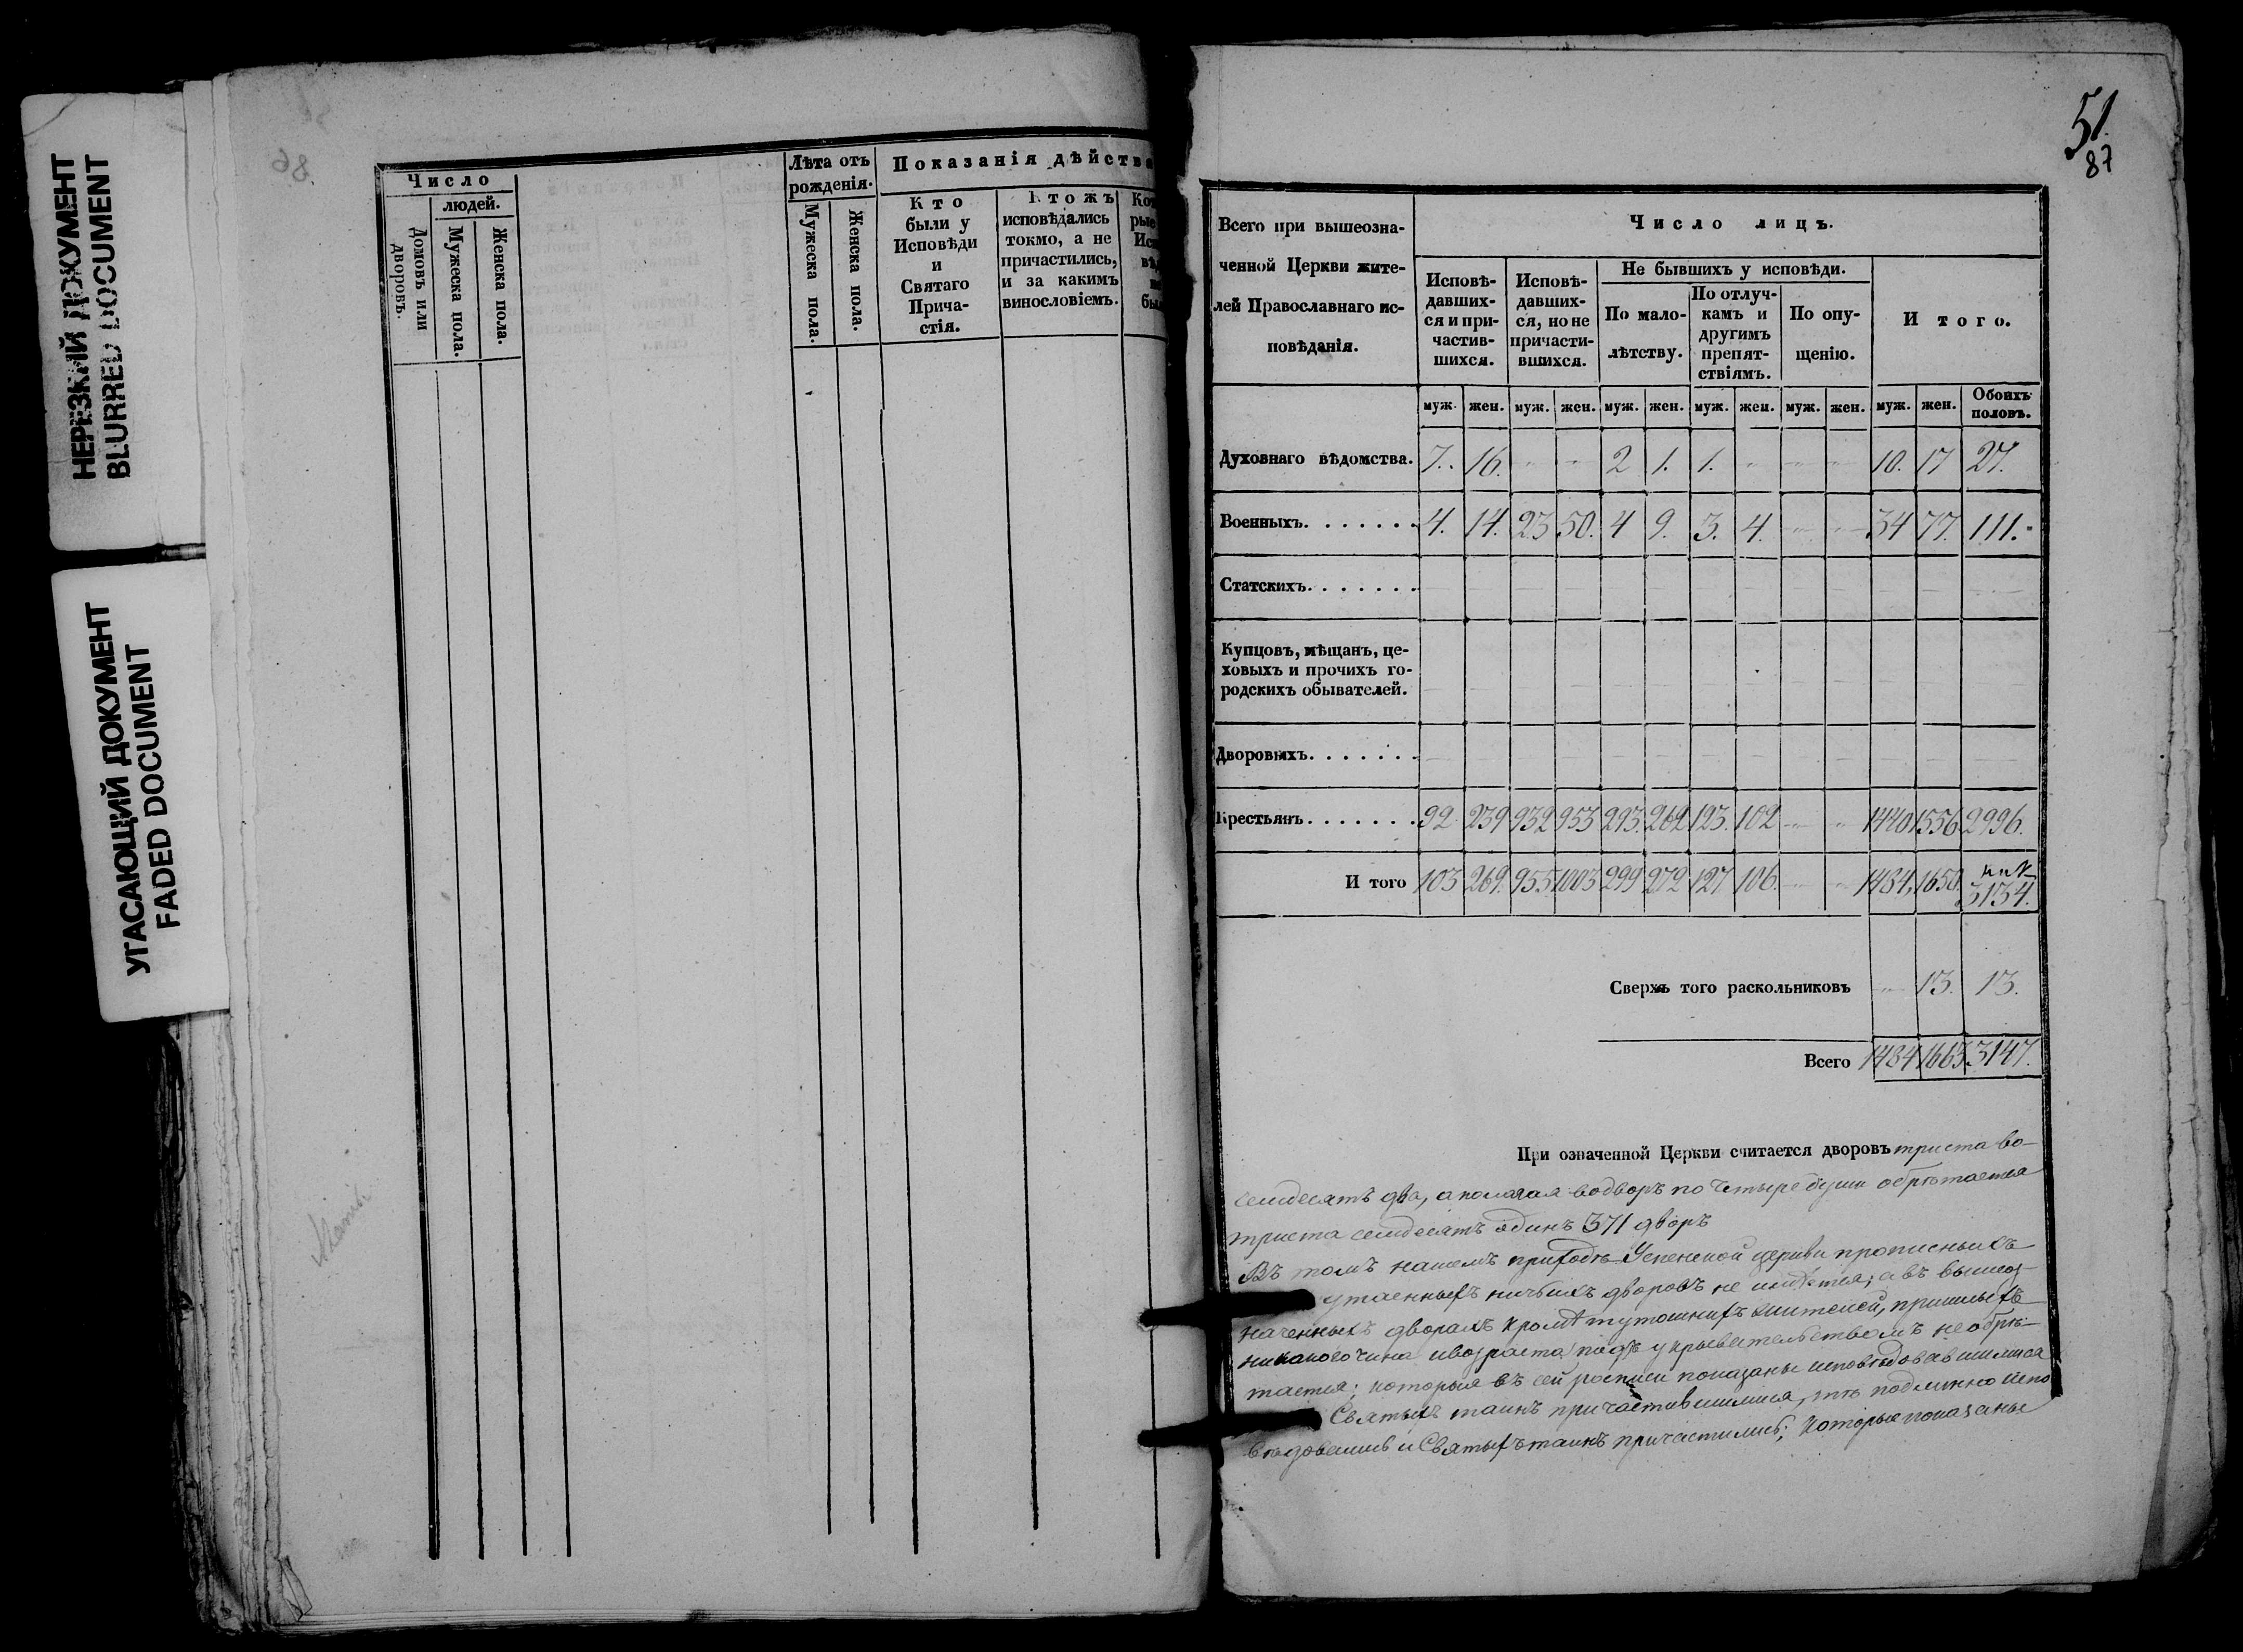 НЕРЕЗКИЙ ДОКУМЕНТ
BLURRED DOCUMENT
УГАСАЮЩИЙ ДОКУМЕНТ
FADED DOCUMENT
86
Число
людей.
Домовъ или дворовъ.
Мужеска пола.
Женска пола.
Лѣта отъ
рожденія.
Мужеска пола.
Женска пола.
Показанія дѣйств
Кто
были у
Исповѣди
и
Святаго
Прича-
стія.
Ктожъ
исповѣдались
токмо, а не
причастились,
и за какимъ
винословіемъ.
51.
87
Всего при вышеозна-
ченной Церкви жите-
лей Православнаго ис-
повѣданія.
Число лицъ.
Исповѣ-
давших-
ся и при-
частив-
шихся.
Исповѣ-
давших-
ся, но не
причасти-
вшихся.
Не бывшихъ у исповѣди.
По мало-
лѣтству.
По отлуч-
камъ и
другимъ
препят-
ствіямъ.
По опу-
щенію.
И того.
муж. жен. муж. жен. муж. жен. муж. жен. муж. жен. муж. жен. Обоихъ половъ.
Духовнаго вѣдомства. 7. 16. " " 2 1. 1. " " " 10. 17 27.
Военныхъ. 4. 14. 23 50. 4 9. 3. 4. " " 34 77. 111.
Статскихъ.
Купцовъ, мѣщанъ, це-
ховыхъ и прочихъ го-
родскихъ обывателей.
Дворовыхъ.
Крестьянъ. 92 239 932 953 293. 262 123. 102 " " 1440 1556 2996.
И того 103 269. 955 1003 299 272 127 106. " " 1484, 1650. 3134.
Сверхъ того раскольниковъ " 13. 13.
Всего 1484 1663. 3147.
При означенной Церкви считается дворовъ триста во-
семдесятъ два, а полагая водворъ по четыре души обрѣтается
триста семдесятъ одинъ 371 дворъ
Въ томъ нашемъ приходѣ Успенской церкви прописныхъ
утаенныхъ ничьихъ дворовъ не имѣется; а въ вышеоз-
наченныхъ дворахъ кромѣ тутошнихъ жителей, пришлыхъ
никакого чина и возраста подъ укрывательствомъ не обрѣ-
тается; которыя въ сей росписи показаны исповѣдовавшимися
Святыхъ таинъ причастившимися, тѣ подлинно испо
вѣдовались и Святыхъ таинъ причастились; которые показаны